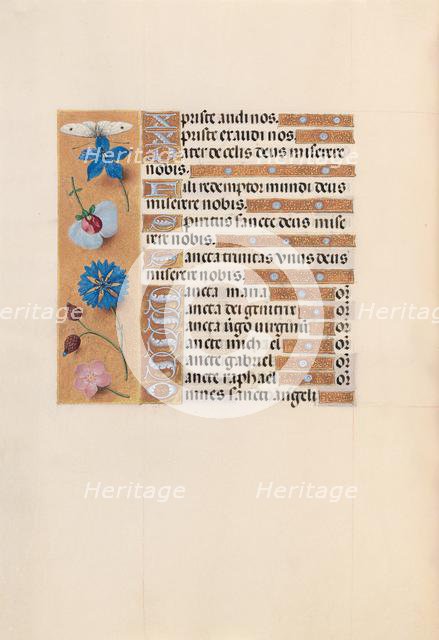 Xpriste audi nos.
Xpriste exaudi nos.
Pater de celis deus miserere
nobis.
Fili redemptor mundi deus
miserere nobis.
Spiritus sancte deus mise
rere nobis.
Sancta trinitas vnus deus
miserere nobis.
Sancta maria or̄
Sancta dei genitrix or̄
Sancta v̄go virginū or̄
Sancte michael or̄
Sancte gabriel or̄
Sancte raphael or̄
Omnes sancti angeli
Heritage Heritage
Heritage Heritage
Heritage Heritage